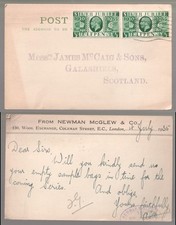 POST
Messrs James McCaig & Sons,
Galashiels,
Scotland.
SILVER JUBILEE
HALFPENNY
SILVER JUBILEE
HALFPENNY
From NEWMAN McGLEW & Co.
Wool Exchange, Coleman Street, E.C., London, July 1935
Dear Sirs,
Will you kindly send us
your empty sample bags in time for the
coming Series.
And oblige
Yours faithfully